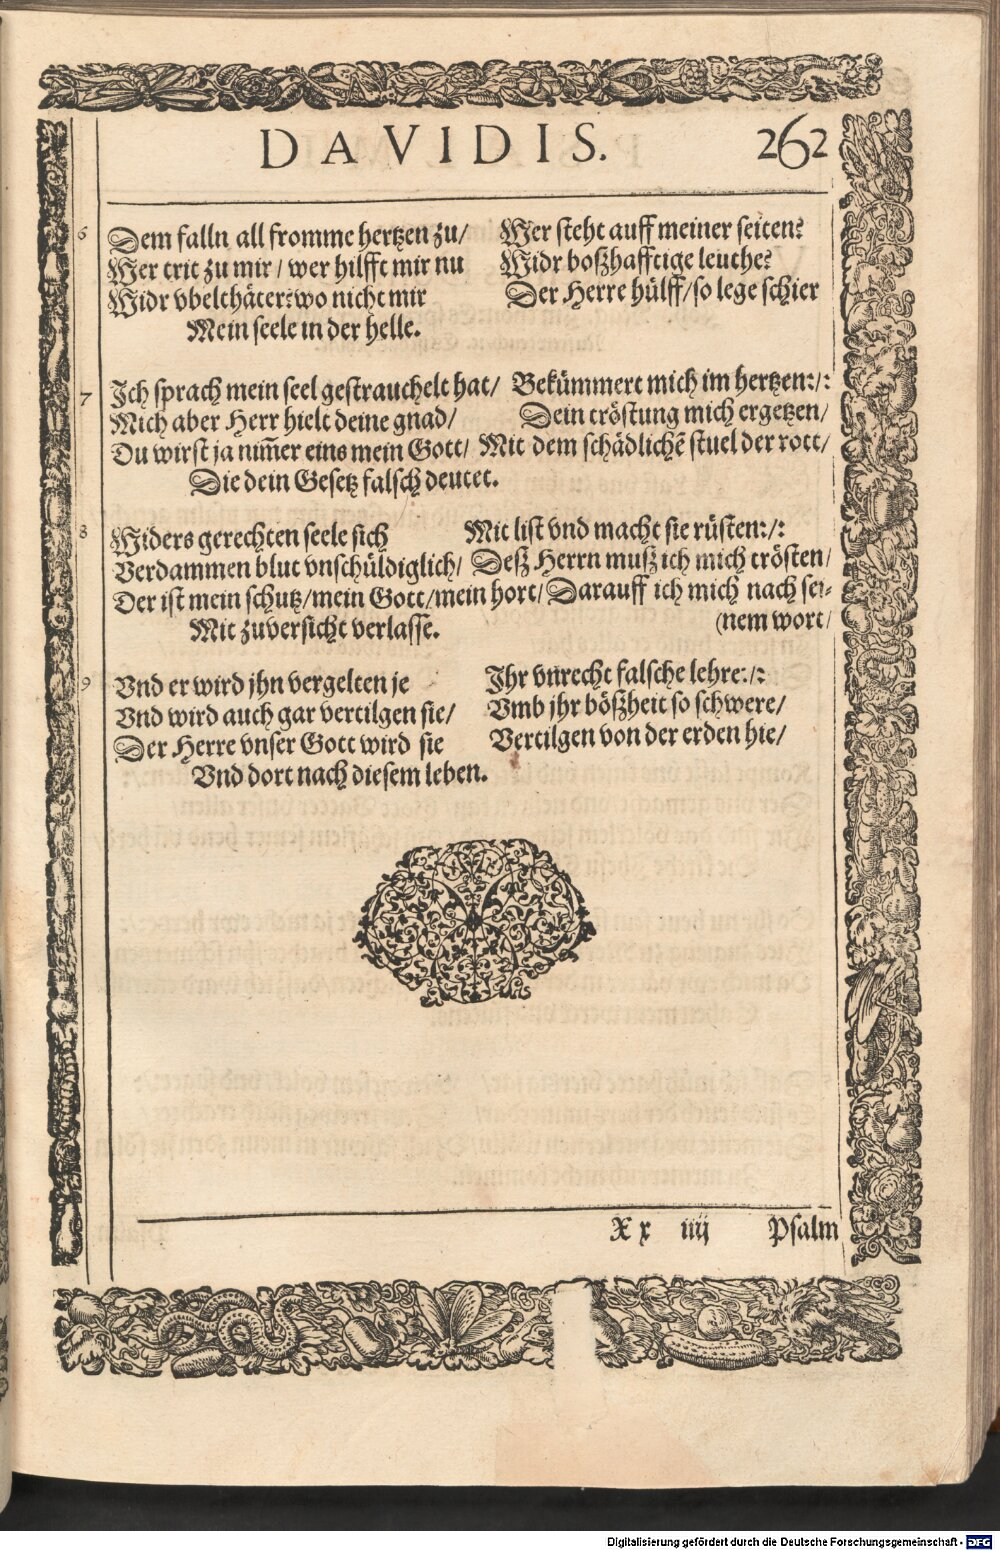 DAVIDIS. 262
6 Dem falln all fromme hertzen zu/ Wer steht auff meiner seiten?
Wer trit zu mir/ wer hilfft mir nu Widr boßhafftige leuthe?
Widr vbelthäter? wo nicht mir Der Herre hülff/ so lege schier
Mein seele in der helle.
7 Ich sprach mein seel gestrauchelt hat/ Bekümmert mich im hertzen:/:
Mich aber Herr hielt deine gnad/ Dein tröstung mich ergetzen/
Du wirst ja nim̃er eins mein Gott/ Mit dem schädlichẽ stuel der rott/
Die dein Gesetz falsch deutet.
8 Widers gerechten seele sich Mit list vnd macht sie rüsten:/:
Verdammen blut vnschüldiglich/ Deß Herrn muß ich mich trösten/
Der ist mein schutz/ mein Gott/ mein hort/ Darauff ich mich nach sei-
Mit zuversicht verlasse. (nem wort/
9 Vnd er wird jhn vergelten je Ihr vnrecht falsche lehre:/:
Vnd wird auch gar vertilgen sie/ Vmb jhr bößheit so schwere/
Der Herre vnser Gott wird sie Vertilgen von der erden hie/
Vnd dort nach diesem leben.
Xx iiij Psalm
Digitalisierung gefördert durch die Deutsche Forschungsgemeinschaft - DFG